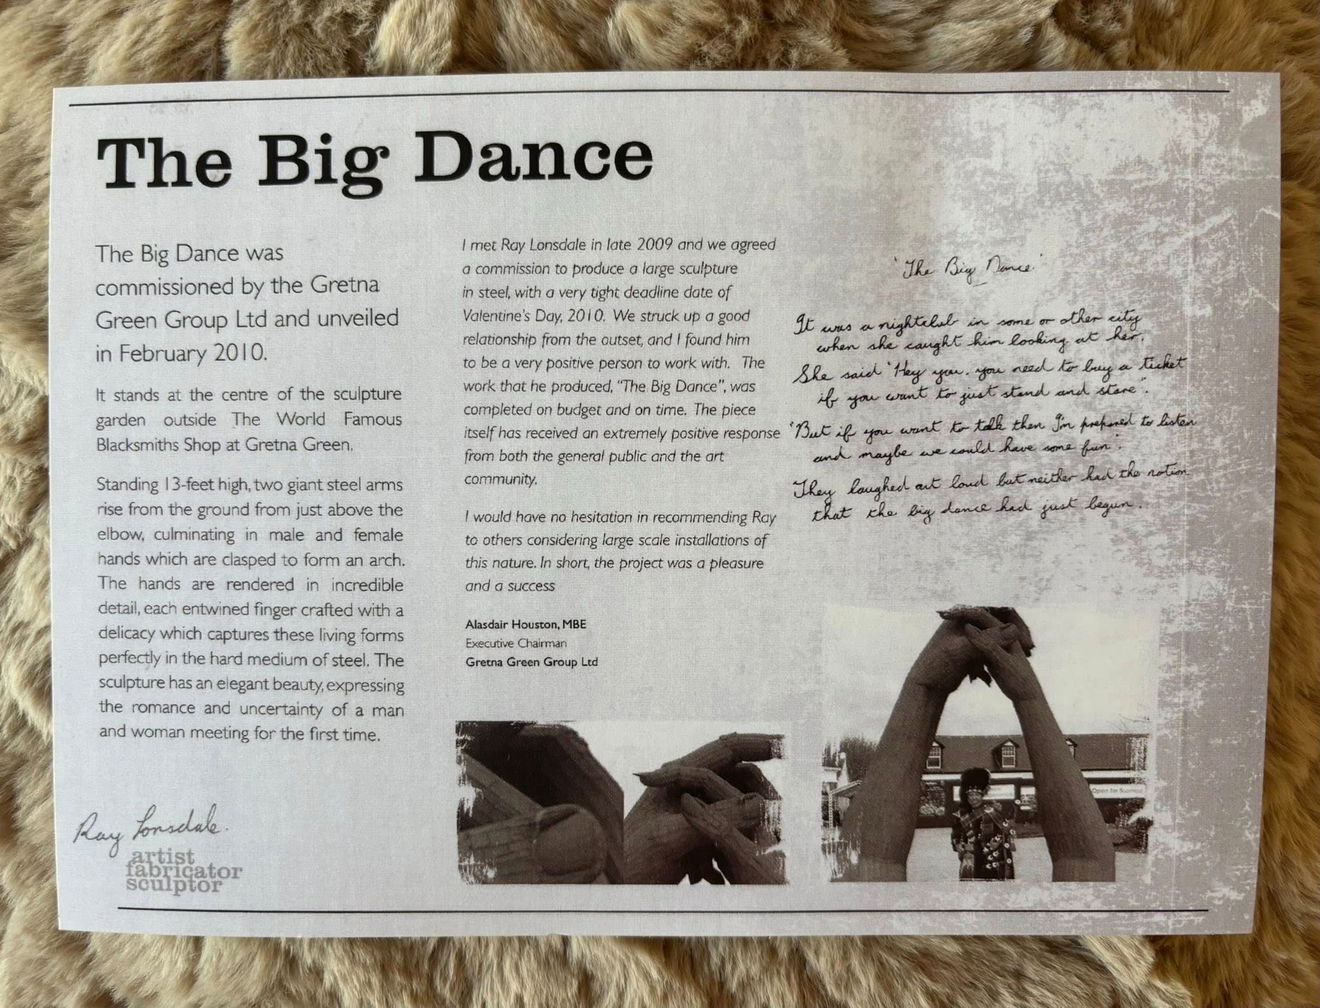 The Big Dance
The Big Dance was
commissioned by the Gretna
Green Group Ltd and unveiled
in February 2010.
It stands at the centre of the sculpture
garden outside The World Famous
Blacksmiths Shop at Gretna Green.
Standing 13-feet high, two giant steel arms
rise from the ground from just above the
elbow, culminating in male and female
hands which are clasped to form an arch.
The hands are rendered in incredible
detail, each entwined finger crafted with a
delicacy which captures these living forms
perfectly in the hard medium of steel. The
sculpture has an elegant beauty, expressing
the romance and uncertainty of a man
and woman meeting for the first time.
Ray Lonsdale.
artist
fabricator
sculptor
I met Ray Lonsdale in late 2009 and we agreed
a commission to produce a large sculpture
in steel, with a very tight deadline date of
Valentine's Day, 2010. We struck up a good
relationship from the outset, and I found him
to be a very positive person to work with. The
work that he produced, "The Big Dance", was
completed on budget and on time. The piece
itself has received an extremely positive response
from both the general public and the art
community.
I would have no hesitation in recommending Ray
to others considering large scale installations of
this nature. In short, the project was a pleasure
and a success
Alasdair Houston, MBE
Executive Chairman
Gretna Green Group Ltd
'The Big Dance.'
It was a nightclub in some or other city
when she caught him looking at her.
She said 'Hey you, you need to buy a ticket
if you want to just stand and stare".
'But if you want to talk then I'm prepared to listen
and maybe we could have some fun'.
They laughed out loud but neither had the notion
that the big dance had just begun.
Open for Business